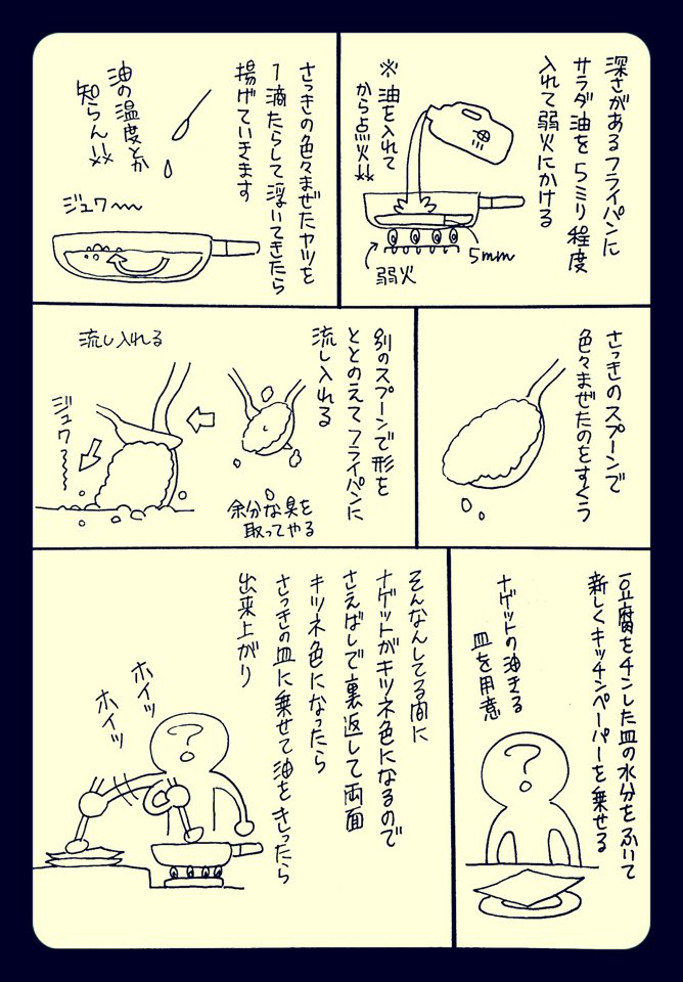 深さがあるフライパンに
サラダ油を5ミリ程度
入れて弱火にかける
※油を入れて
から点火!!
5mm
弱火
さっきの色々まぜたヤツを
1滴たらして浮いてきたら
揚げていきます
油の温度とか
知らん!!
ジュワ〜〜
さっきのスプーンで
色々まぜたのをすくう
別のスプーンで形を
ととのえてフライパンに
流し入れる
余分な具を
取ってやる
流し入れる
ジュワ〜〜
豆腐をチンした皿の水分をふいて
新しくキッチンペーパーを乗せる
ナゲットの油きる
皿を用意
?
そんなんしてる間に
ナゲットがキツネ色になるので
さえばしで裏返して両面
キツネ色になったら
さっきの皿に乗せて油をきったら
出来上がり
ホイッ
ホイッ
?